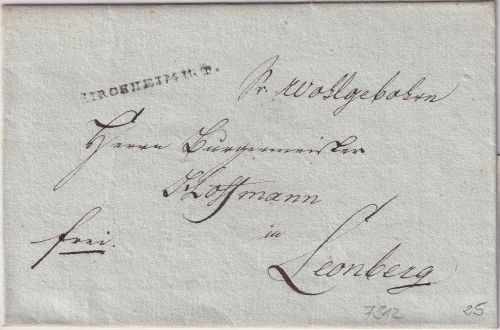 KIRCHHEIM U. T.
Sr. Wohlgebohrn
Herrn Burgermeister
Hoffmann
in
frei.
Leonberg
25